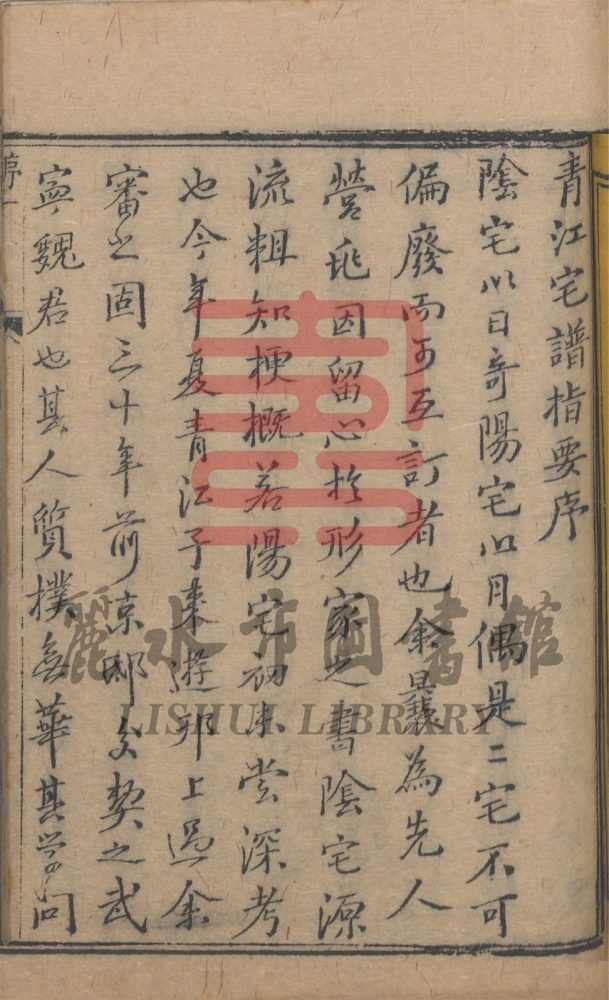 青江宅譜指要序
陰宅以日奇陽宅以月偶是二宅不可
偏廢而可互訂者也余曩為先人
營兆因留心於形家之書陰宅源
流粗知梗概若陽宅初未嘗深考
也今年夏青江子来遊邗上過余
審之固三十年前京邸交契之武
寧魏君也其人質樸無華其學問
序一
麗水市圖書館
LISHUI LIBRARY